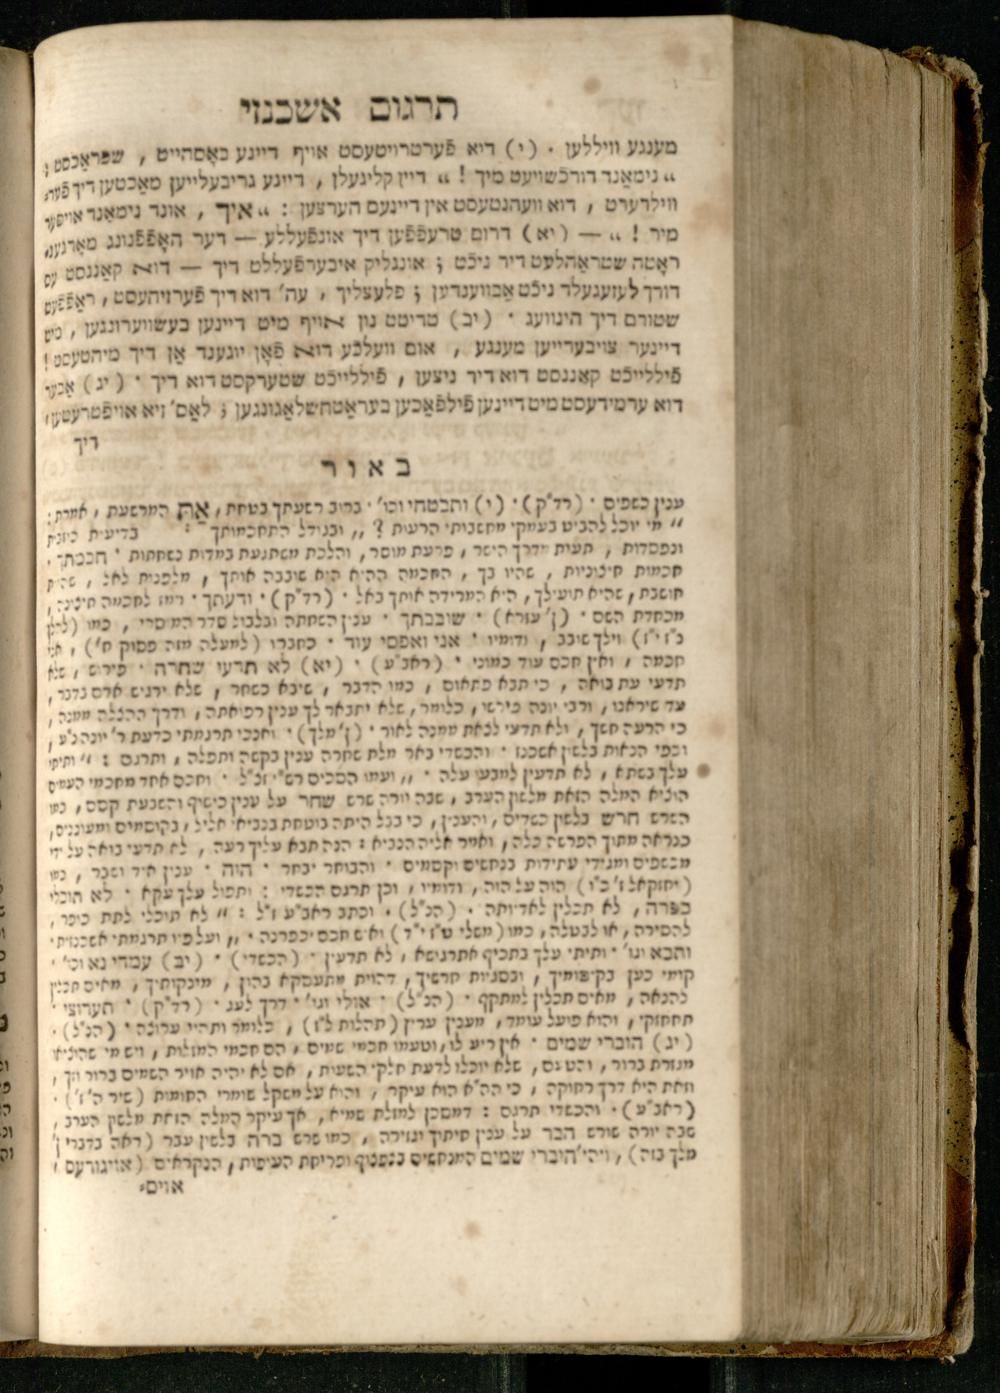 תרגום אשכנזי
מענגע וויללען . (י) דיא פֿערטרויטעסט אויף דיינע באָסהייט , שפּראַכסט :
„ נימאַנד דורכֿשויעט מיך ! “ דיין קליגעלן , דיינע גריבעלייען מאַכטען דיך פֿער=
ווילדערט , דוא וועהנטעסט אין דיינעם הערצען : „ איך , אונד נימאַנד אויסער
מיר ! “ — (יא) דרום טרעפֿפֿען דיך אונפֿעללע — דער האָפֿפֿנונג מאָרגענ=
ראָטה שטראַהלעט דיר ניכֿט ; אונגליק איבערפֿעללט דיך — דוא קאַננסט עס
דורך לעזעגעלד ניכֿט אַבווענדען ; פלעצליך , עה' דוא דיך פֿערזיהעסט , ראַפֿפֿט
שטורם דיך הינוועג . (יב) טריטט נון אויף מיט דיינען בעשווערונגען , מיט
דיינער צויבערייען מענגע , אום וועלכֿע דוא פֿאָן יוגענד אַן דיך מיהטעסט !
פֿיללייכֿט קאַננסט דוא דיר ניצען , פֿיללייכֿט שטערקסט דוא דיך . (יג) אַבער
דוא ערמידעסט מיט דיינען פֿילפֿאַכען בעראַטהשלאַגונגען ; לאַס' זיא אויפֿטרעטען ,
דיך
באור
ענין כשפים . (רד"ק) . (י) ותבטחי וכו' . ברוב רשעתך בטחת , אַתְּ המרשעת , אמרת :
„ מי יוכל להביט בעמקי מחשבותי הרעות ? “ , ובגודל התחכמותך : בדיעות כוזבות
ונפסדות , תעית מדרך הישר , פרעת מוסר , והלכת משתגעת במדות נשחתות . חכמתך .
חכמות חיצוניות , שהיו בך , החכמה ההיא היא שובבה אותך , מלפנות לאל , שהית
חושבת , שהיא תועילך , היא המרידה אותך באל . (רד"ק) . ודעתך . רמז לחכמה חיצונה ,
מכחדת השם . (ן' עזרא) . שובבתך . ענין השחתה ובלבול סדר המוסרי , כמו (להלן
נ"ז י"ז) וילך שובב , ודומיו . אני ואפסי עוד . כחברו (למעלה מזה פסוק ח') , אני
חכמה , ואין חכם עוד כמוני . (ראב"ע) . (יא) לא תדעי שחרה . פירוש , שלא
תדעי עת בואה , כי תבא פתאום , כמו הדבר , שיבא כשחר , שלא ירגיש אדם בדבר ,
עד שיראנו , ורבי יונה פירשו , כלומר , שלא יתבאר לך ענין רפואתה , ודרך ההצלה ממנה ,
כי הרעה חשך , ולא תדעי לצאת ממנה לאור . (ן' מלך) . ואנכי תרגמתי כדעת ר' יונה נ"ע ,
וכפי הנאות בלשון אשכנז . והכשדי באר מלת שחרה ענין בקשה ותפלה , ותרגם : „ ותיתי
עלך בשתא , לא תדעין למבעי עלה . “ , ועמו הסכים רש"י זכ"ל . וחכם אחד מחכמי העמים
הוציא המלה הזאת מלשון הערב , שבה יורה שרש שחר על ענין כישוף והשבעת קסם , כמו
השרש חרש בלשון כשדים , והענין , כי בבל היתה בוטחת בנביאי אליל , בקוסמים ומעוננים ,
כנראה מתוך הפרשה כלה , ואמר אליה הנביא : הנה תבא עליך רעה , לא תדעי בואה על ידי
מכשפים ומגידי עתידות בנחשים וקסמים . והבוחר יבחר . הוה . ענין איד ושבר , כמו
(יחזקאל ז' כ"ו) הוה על הוה , ודומיו , וכן תרגם הכשדי : ותפול עלך עקא . לא תוכלי
כפרה , לא תכלין לאדיותה . (הנ"ל) . וכתב ראב"ע ז"ל : „ לא תוכלי לתת כופר ,
להסירה , או לבטלה , כמו (משלי ט"ז י"ד) ואיש חכם יכפרנה . “ , ועל פיו תרגמתי אשכנזית .
ותבא וגו' . ותיתי עלך בתכיף אתרגושא , לא תדעין . (הכשדי) . (יב) עמדי נא וכו' .
קומי כען בקיסומיך , ובסגיאות חרשיך , דהוית מתעסקא בהון , מינקותיך , מאים תכלין
להנאה , מאים תכלין למתקף . (הנ"ל) . אולי וגו' . דרך לעג . (רד"ק) . תערוצי .
תתחזקי , והוא פועל עומד , מענין עריץ (תהלות ל"ז) , כלומר ותהיי ערוצה . (הנ"ל) .
(יג) הוברי שמים . אין ריע לו , וטעמו חכמי שמים , הם חכמי המזלות , ויש מי שהוציאו
מגזרת ברור , והטעם , שלא יוכלו לדעת חלקי השעות , אם לא יהיה אויר השמים ברור וזך ,
וזאת היא דרך רחוקה , כי הה"א הוא עיקר , והוא על משקל שומרי החומות (שיר ה' ז') .
(ראב"ע) . והכשדי תרגם : דמסכן למזלת שמיא , אך עיקר המלה הזאת מלשון הערב ,
שבה יורה שורש הבר על ענין חיתוך וגזירה , כמו שרש ברה בלשון עבר (ראה בדברי ן'
מלך בזה) , ויהי' הוברי שמים המנחשים בצפצוף ופריחת העופות , הנקראים (אויגורעס ,
אוים=